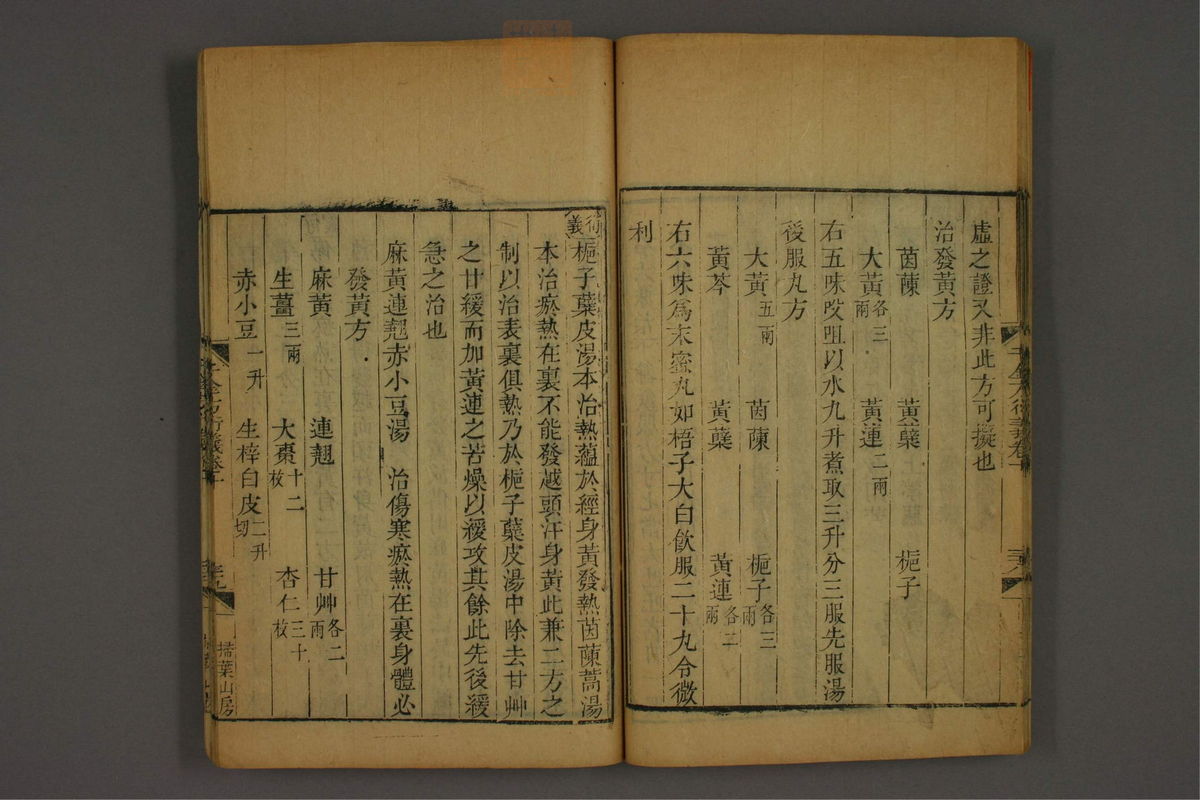 虛之證又非此方可擬也
治發黃方
茵蔯 黃蘗 梔子
大黃各三兩 黃連二兩
右五味㕮咀以水九升煮取三升分三服先服湯
後服丸方
大黃五兩 茵蔯 梔子各三兩
黃芩 黃蘗 黃連各二兩
右六味爲末蜜丸如梧子大白飲服二十丸令微
利
衍義梔子蘗皮湯本治熱蘊於經身黃發熱茵蔯蒿湯
本治瘀熱在裏不能發越頭汗身黃此兼二方之
制以治表裏俱熱乃於梔子蘗皮湯中除去甘艸
之甘緩而加黃連之苦燥以緩攻其餘此先後緩
急之治也
麻黃連翹赤小豆湯 治傷寒瘀熱在裏身體必
發黃方
麻黃 連翹 甘艸各二兩
生薑三兩 大棗十二枚 杏仁三十枚
赤小豆一升 生梓白皮二升切
千金方衍義卷十
掃葉山房